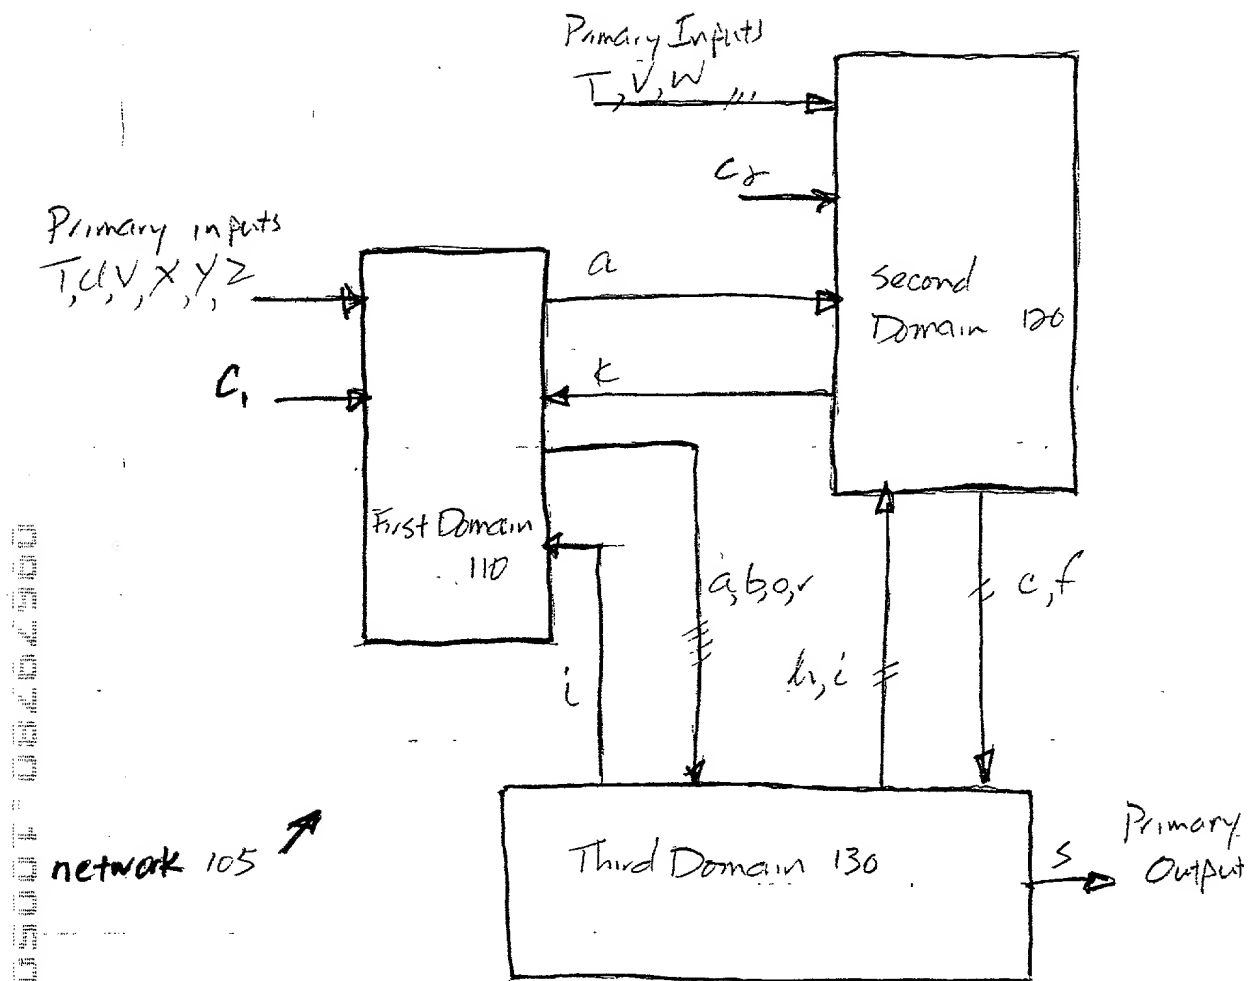 Primary Inputs
T, V, W
C2
Primary inputs
T, U, V, X, Y, Z
a
Second
Domain 120
C1
k
First Domain
110
a, b, o, r
c, f
h, i
i
network 105
Third Domain 130
s
Primary
Output